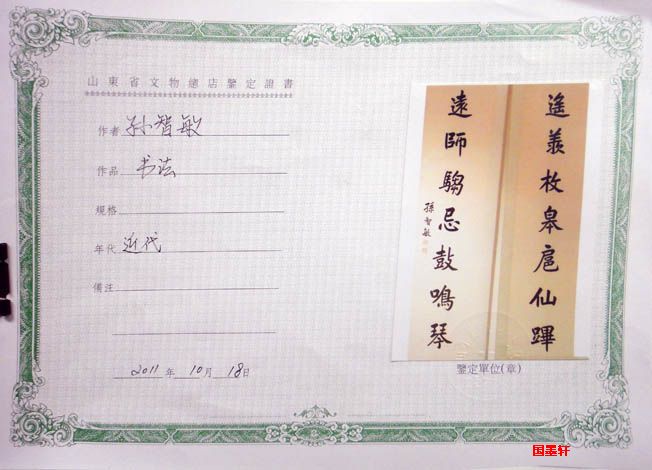 山東省文物總店鑒定證書
作者 孙智敏
作品 书法
規格
年代 近代
備注
2011年10月18日
遙羨枚皋扈仙蹕
遠師騶忌鼓鳴琴
孫智敏
鑒定單位(章)
国墨轩